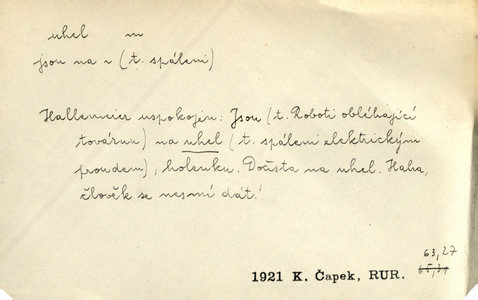 uhel m
jsou na ~ (t. spáleni)
Hallemeier uspokojen: Jsou (t. Roboti obléhající
továrnu) na uhel (t. spáleni elektrickým
proudem), holenku. Dočista na uhel. Haha,
člověk se nesmí dát!
63,27
1921 K. Čapek, RUR.